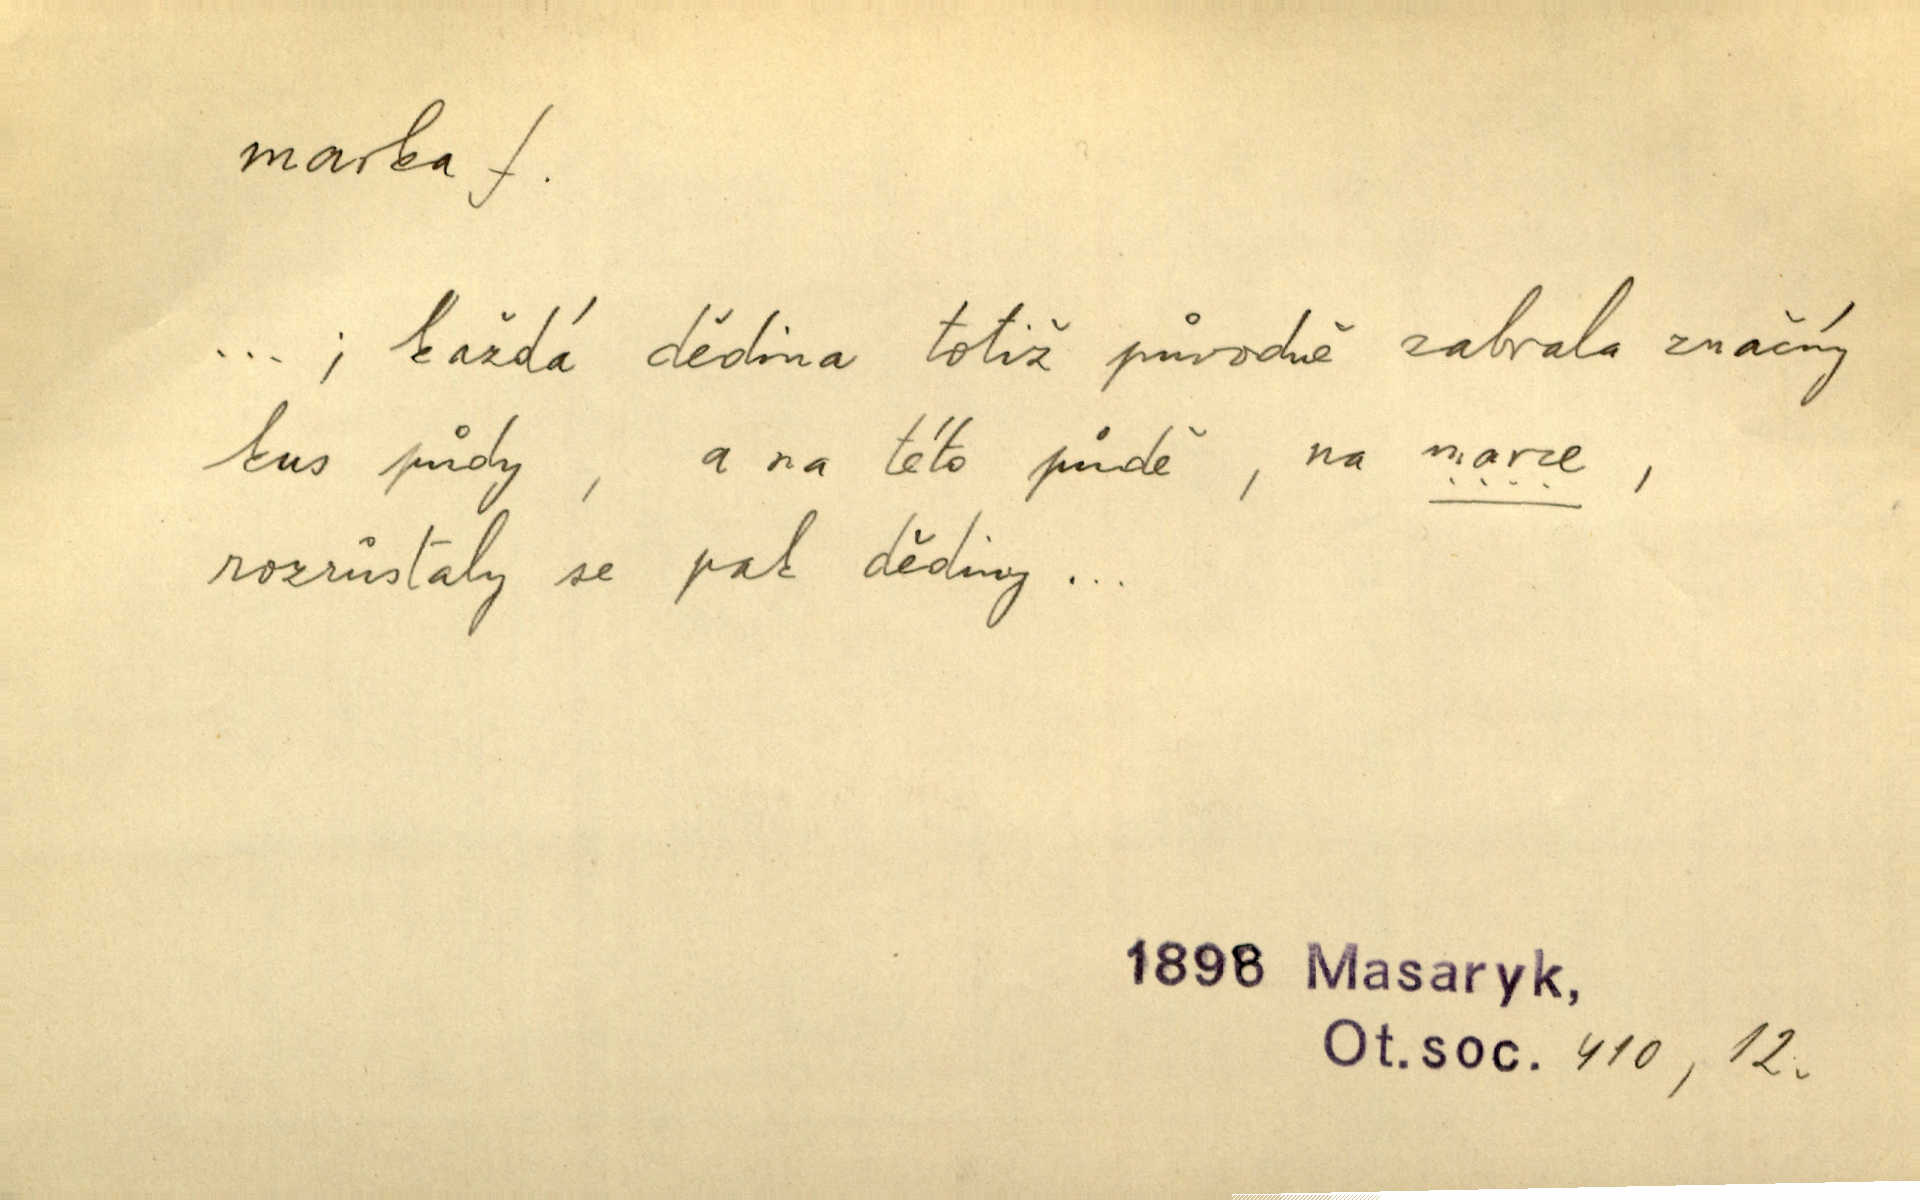 marka f.
... ; každá dědina totiž původně zabrala značný
kus půdy , a na této půdě , na marce ,
rozrůstaly se pak dědiny ...
1898 Masaryk,
Ot. soc. 410 , 12.